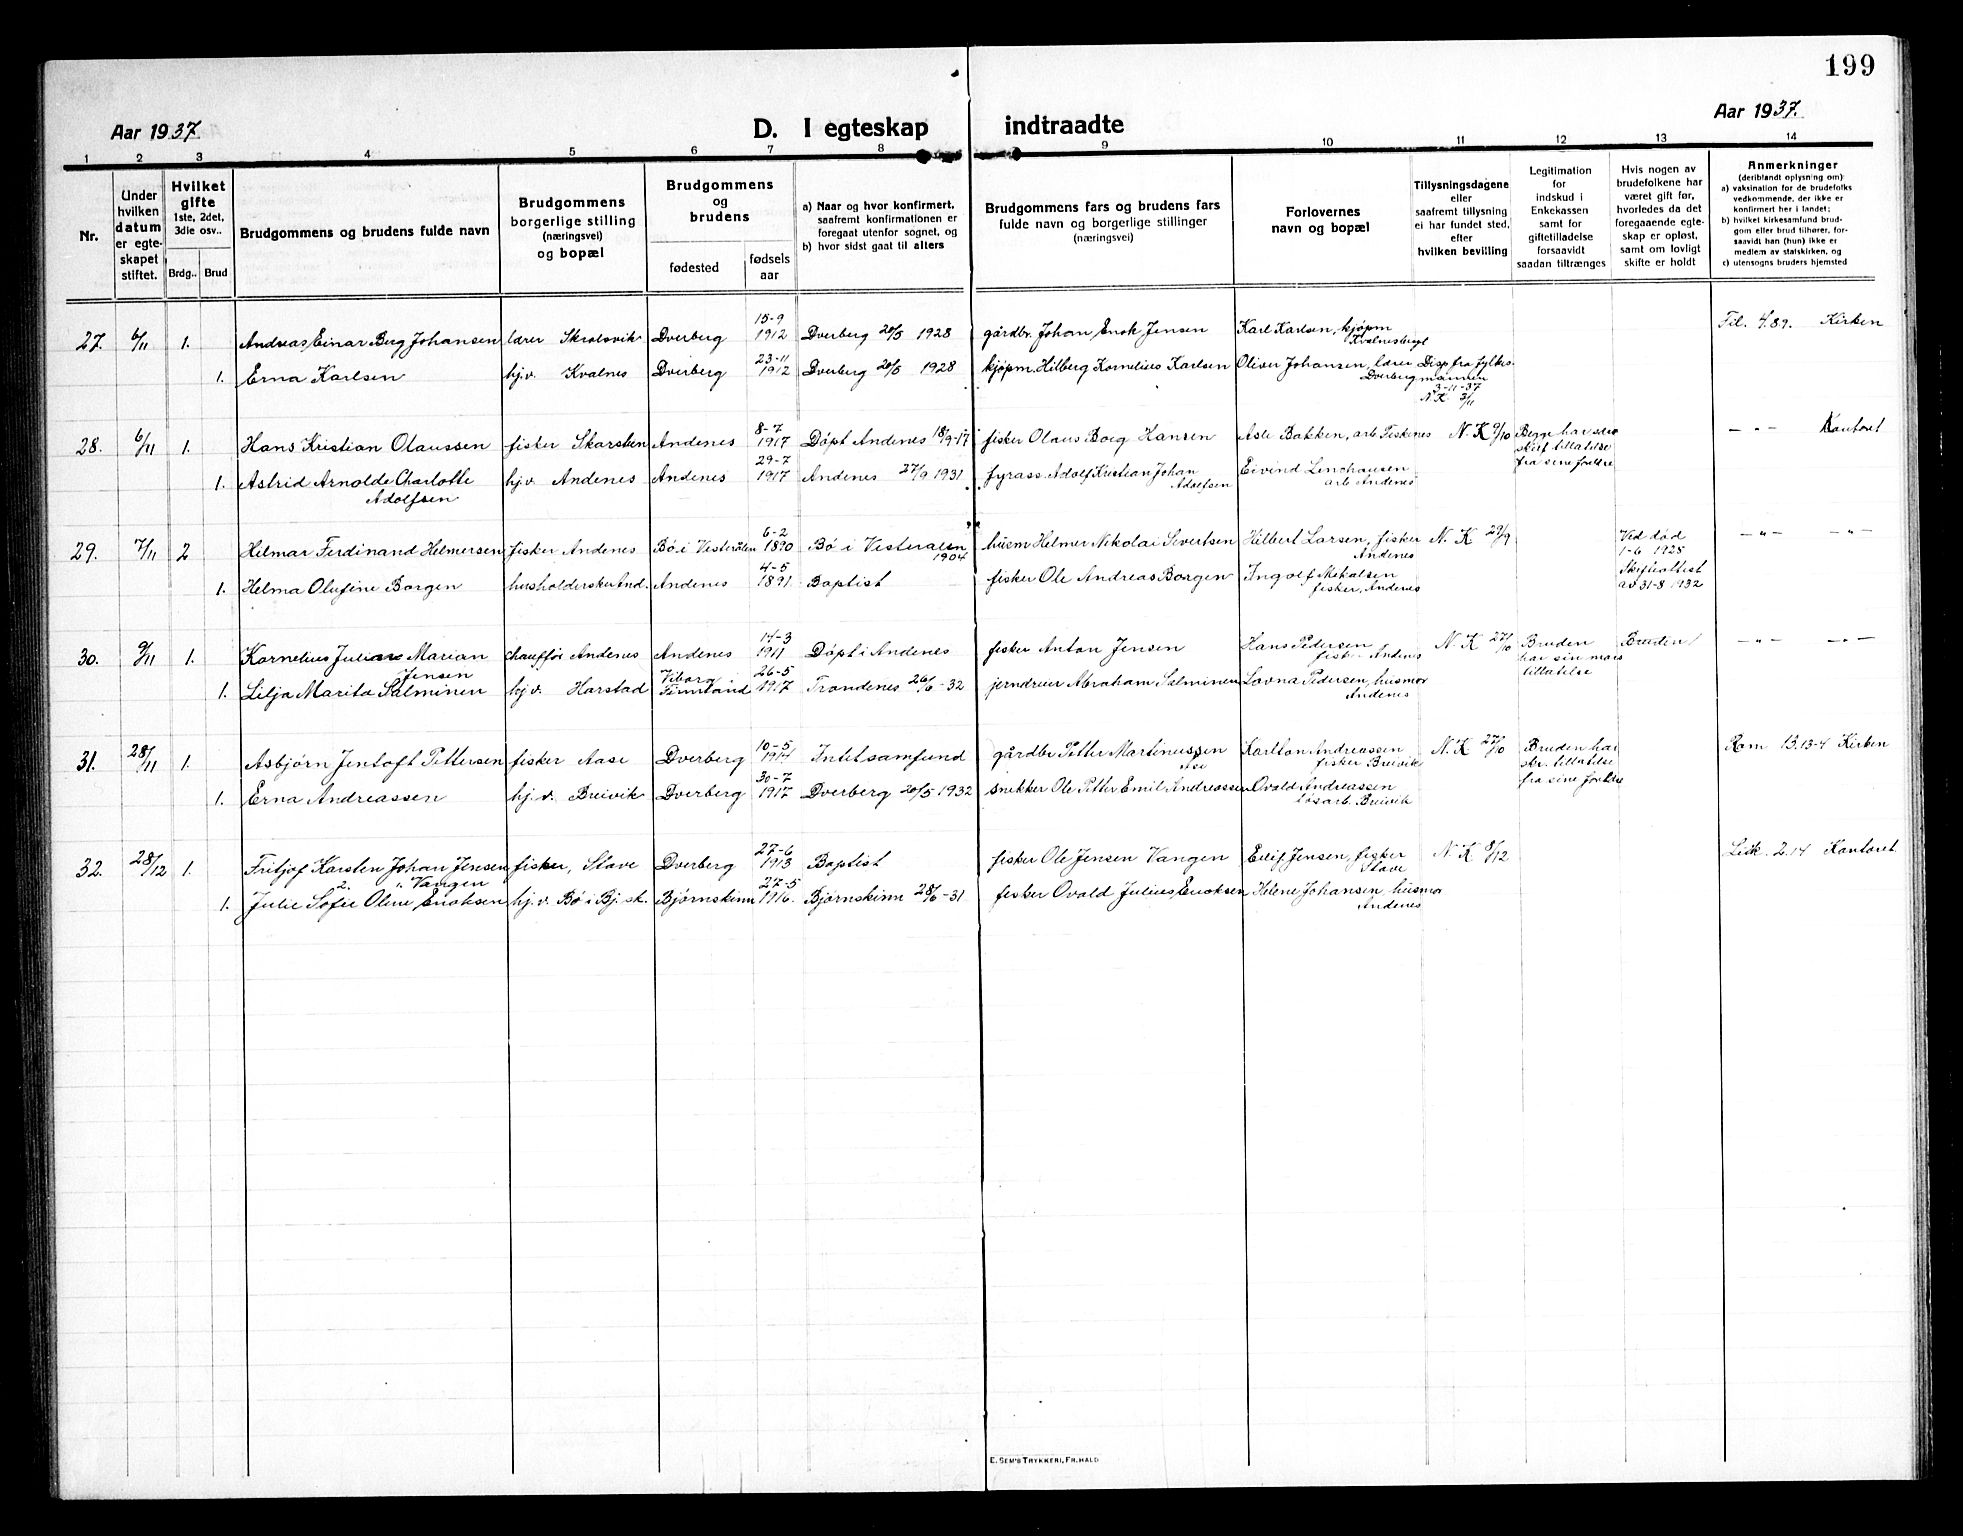 199
Aar 1937.
D. I egteskap indtraadte
Aar 1937.
1 2 3 4 5 6 7 8 9 10 11 12 13 14
Nr.
Under hvilken datum er egte-skapet stiftet.
Hvilket gifte 1ste, 2det, 3die osv..
Brdg.. Brud
Brudgommens og brudens fulde navn
Brudgommens borgerlige stilling (næringsvei) og bopæl
Brudgommens og brudens
fødested
fødsels aar
a) Naar og hvor konfirmert, saafremt konfirmationen er foregaat utenfor sognet, og
b) hvor sidst gaat til alters
Brudgommens fars og brudens fars fulde navn og borgerlige stillinger (næringsvei)
Forlovernes navn og bopæl
Tillysningsdagene eller saafremt tillysning ei har fundet sted, efter hvilken bevilling
Legitimation for indskud i Enkekassen samt for giftetilladelse forsaavidt saadan tiltrænges
Hvis nogen av brudefolkene har været gift før, hvorledes da det foregaaende egte-skap er opløst, samt om lovligt skifte er holdt
Anmerkninger (deriblandt oplysning om):
a) vaksination for de brudefolks vedkommende, der ikke er konfirmert her i landet;
b) hvilket kirkesamfund brud-gom eller brud tilhører, for-saavidt han (hun) ikke er medlem av statskirken, og
c) utensogns bruders hjemsted
27. 6/11 1. Andreas Einar Berg Johansen lærer Skrolsvik Dverberg 15-9 1912 Dverberg 20/5 1928 gårdbr. Johan Enok Jensen Karl Karlsen, kjøpm Kvalnesbrygt Fil. 4.8.9. Kirken
1. Erna Karlsen hj.v. Kvalnes Dverberg 23-11 1912 Dverberg 20/5 1928 kjøpm. Hilberg Kornelius Karlsen Oliver Johansen, lærer Dverberg Disp fra fylkesmannen 3-11-37 N.K 3/11
28. 6/11 1. Hans Kristian Olaussen fisker Skarsten Andenes 8-7 1917 Døpt Andenes 18/9-17 fisker Olaus Borg Hansen Asle Bakken, arb Fiskenes N.K 9/10 Begge har skr skifl tillatelse fra sine foreldre — " — Kontoret
1. Astrid Arnolde Charlotte Adolfsen hj.v. Andenes Andenes 29-7 1917 Andenes 27/9 1931 fyrass. Adolf Kristian Johan Adolfsen Eivind Lenchausen arb Andenes
29. 7/11 2 Hilmar Ferdinand Helmersen fisker Andenes Bø i Vesterålen 6-2 1890 Bø i Vesterålen 1904 husm Helmer Nikolai Sivertsen Hilbert Larsen, fisker Andenes N.K 29/9 Ved død 1-6 1928 Skifteattest av 31-8 1932 — " — — " —
1. Helma Olufine Borgen husholderske And. Andenes 4-5 1891 Baptist fisker Ole Andreas Borgen Ingolf Mikalsen fisker, Andenes
30. 9/11 1. Kornelius Julian Marian Jensen chauffør Andenes Andenes 14-3 1911 Døpt i Andenes fisker Anton Jensen Hans Pedersen fisker Andenes N.K 27/10 Bruden har sin mors tillatelse Bruden — " — — " —
1. Lilja Marita Salminen hj.v. Harstad Viborg i Finnland 26-5 1917 Trondenes 26/6-32 jerndreier Abraham Salminen Lovna Pedersen, husmor Andenes
31. 28/11 1. Asbjørn Jentoft Pettersen fisker Aase Dverberg 10-5 1914 Intet samfund gårdbr Petter Martinussen Åse Karlton Andreassen fisker Breivik N.K 27/10 Bruden har skr. tillatelse fra sine foreldre Rom 13.13-4 Kirken
1. Erna Andreassen hj.v. Breivik Dverberg 30-7 1917 Dverberg 20/5 1932 snekker Ole Petter Emil Andreassen Ovald Andreassen løsarb. Breivik
32. 28/12 1. Fritjof Karsten Johan Jensen Vangen fisker, Stave Dverberg 27-6 1913 Baptist fisker Ole Jensen Vangen Eilif Jensen, fisker Stave N.K 8/12 Luk. 2.14 Kontoret
1. Julie Sofie Oline Enoksen hj.v. Bø i Bj.sk. Bjørnskinn 27-5 1916. Bjørnskinn 28/6-31 fisker Ovald Julius Enoksen Helene Johansen husmor Andenes
E. SEM'S TRYKKERI, FR.HALD